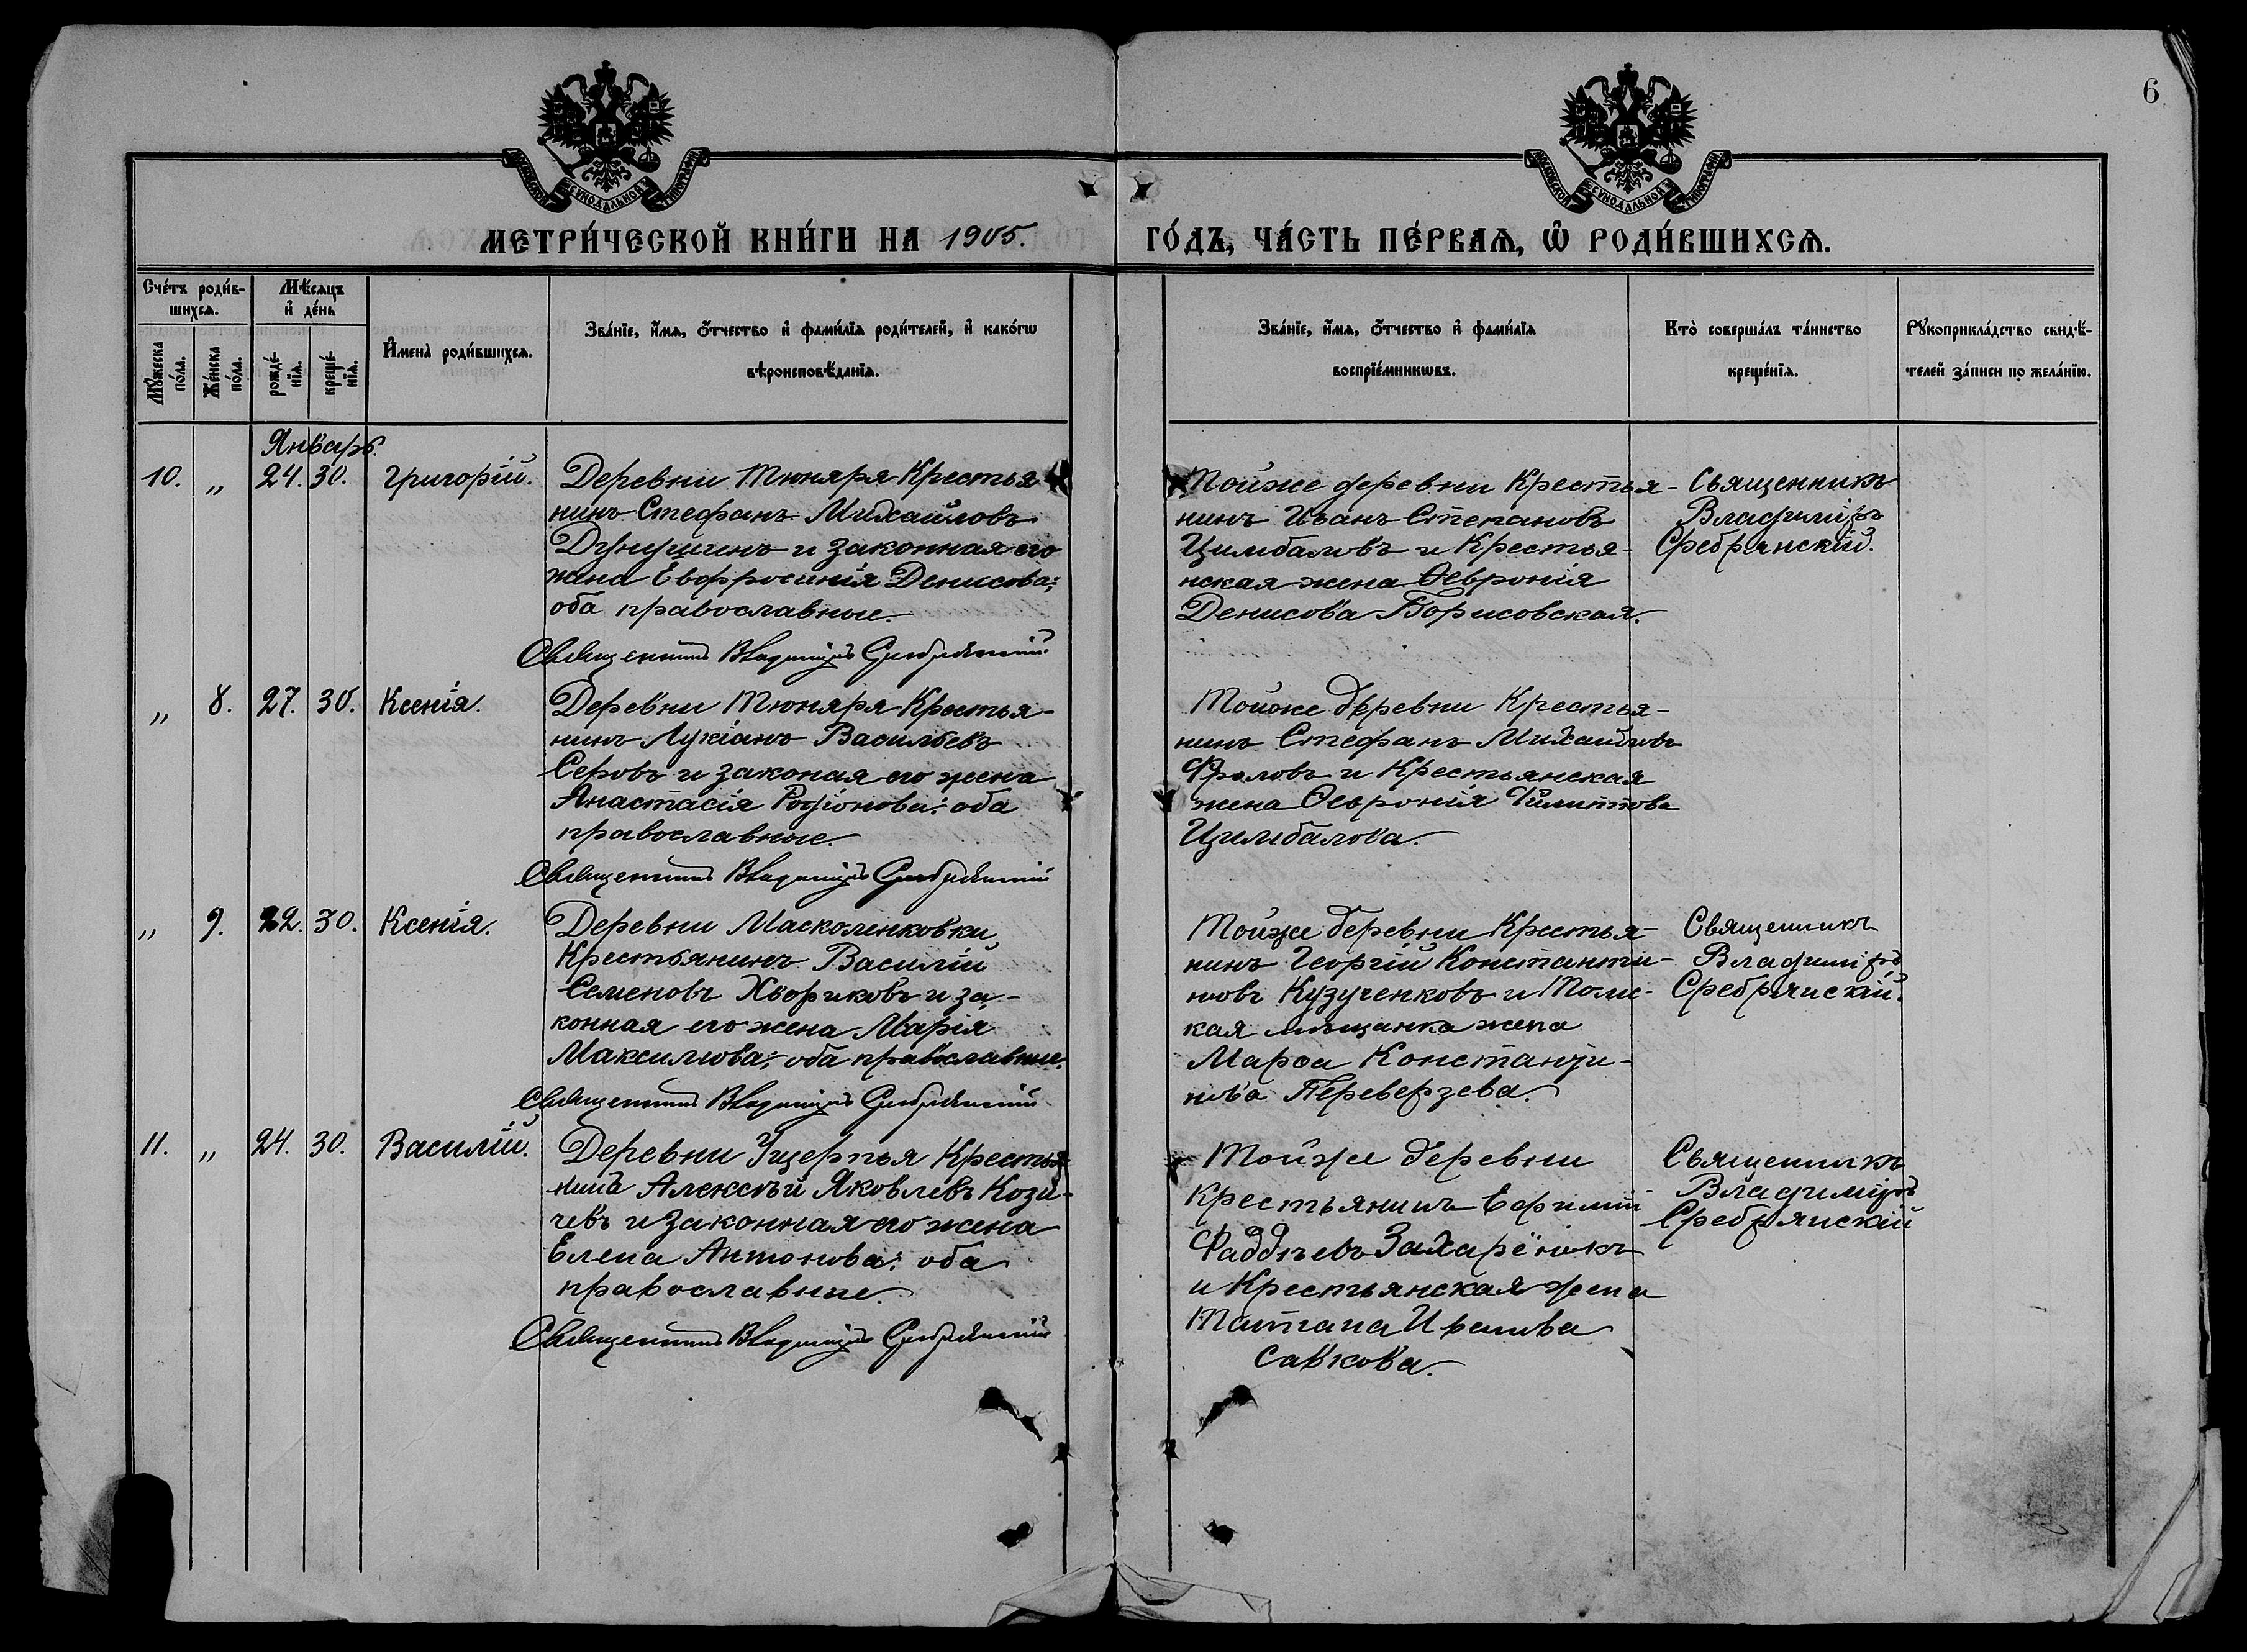 6
МОСКОВСКОЙ СѴНОДАЛЬНОЙ ТИПОГРАФІИ
МОСКОВСКОЙ СѴНОДАЛЬНОЙ ТИПОГРАФІИ
МЕТРИ́ЧЕСКОЙ КНИ́ГИ НА 1905. ГО́ДЪ, ЧА́СТЬ ПЕ́РВАѦ, Ѡ҆ РОДИ́ВШИХСѦ.
Счéтъ роди́в-
шихсѧ.
Мꙋ́жеска по́ла.
Же́нска по́ла.
Мѣ́сяцъ
и҆ де́нь
рождé-
нїѧ.
крещé-
нїѧ.
И҆менà роди́вшихсѧ.
Звáнїе, и҆́мѧ, ѻ҆́тчество и҆ фами́лїѧ роди́телей, и҆ какóгѡ
вѣроисповѣ́данїѧ.
Звáнїе, и҆́мѧ, ѻ҆́тчество и҆ фами́лїѧ
воспрїéмникѡвъ.
Ктò совершáлъ тáинство
крещéнїѧ.
Рꙋкоприклáдство свидѣ́-
телей зáписи по желáнїю.
Январь.
10. „ 24. 30. Григорій.
Деревни Тюняря Крестья-
нинъ Стефанъ Михаиловъ
и законная его
жена Евфросинія Денисова;
оба православные.
Священникъ Владиміръ Сребрянскій
Тойже деревни Крестья-
нинъ Иванъ Степановъ
Цимбаловъ и Крестья-
нская жена Ѳевронія
Денисова Борисовская.
Священникъ
Владиміръ
Сребрянскій.
„ 8. 27. 30. Ксенія.
Деревни Тюняря Крестья-
нинъ Лукіанъ Васильевъ
Серовъ и законая его жена
Анастасія Родіонова: оба
православные.
Священникъ Владиміръ Сребрянскій
Тойже деревни Крестья-
нинъ Стефанъ Михайловъ
Фроловъ и Крестьянская
жена Ѳевронія Филиппова
Цимбалова.
„ 9. 22. 30. Ксенія.
Деревни Масколенковки
Крестьянинъ Василій
Семеновъ Хвориковъ и за-
конная его жена Марія
Максимова; оба православные.
Священникъ Владиміръ Сребрянскій
Тойже деревни Крестья-
нинъ Георгій Константи-
новъ Кузученковъ и Томс-
кая мѣщанка жена
Марѳа Константи-
нова Переверзева.
Священникъ
Владиміръ
Сребрянскій.
11. „ 24. 30. Василій.
Деревни Ущерпья Крестья-
нинъ Алексѣй Яковлевъ Кози-
чевъ и законная его жена
Елена Антонова; оба
православные.
Священникъ Владиміръ Сребрянскій
Тойже деревни
крестьянинъ Ефимій
Фаддѣевъ Захарёнокъ
и Крестьянская жена
Татіана Иванова
Савкова.
Священникъ
Владиміръ
Сребрянскій